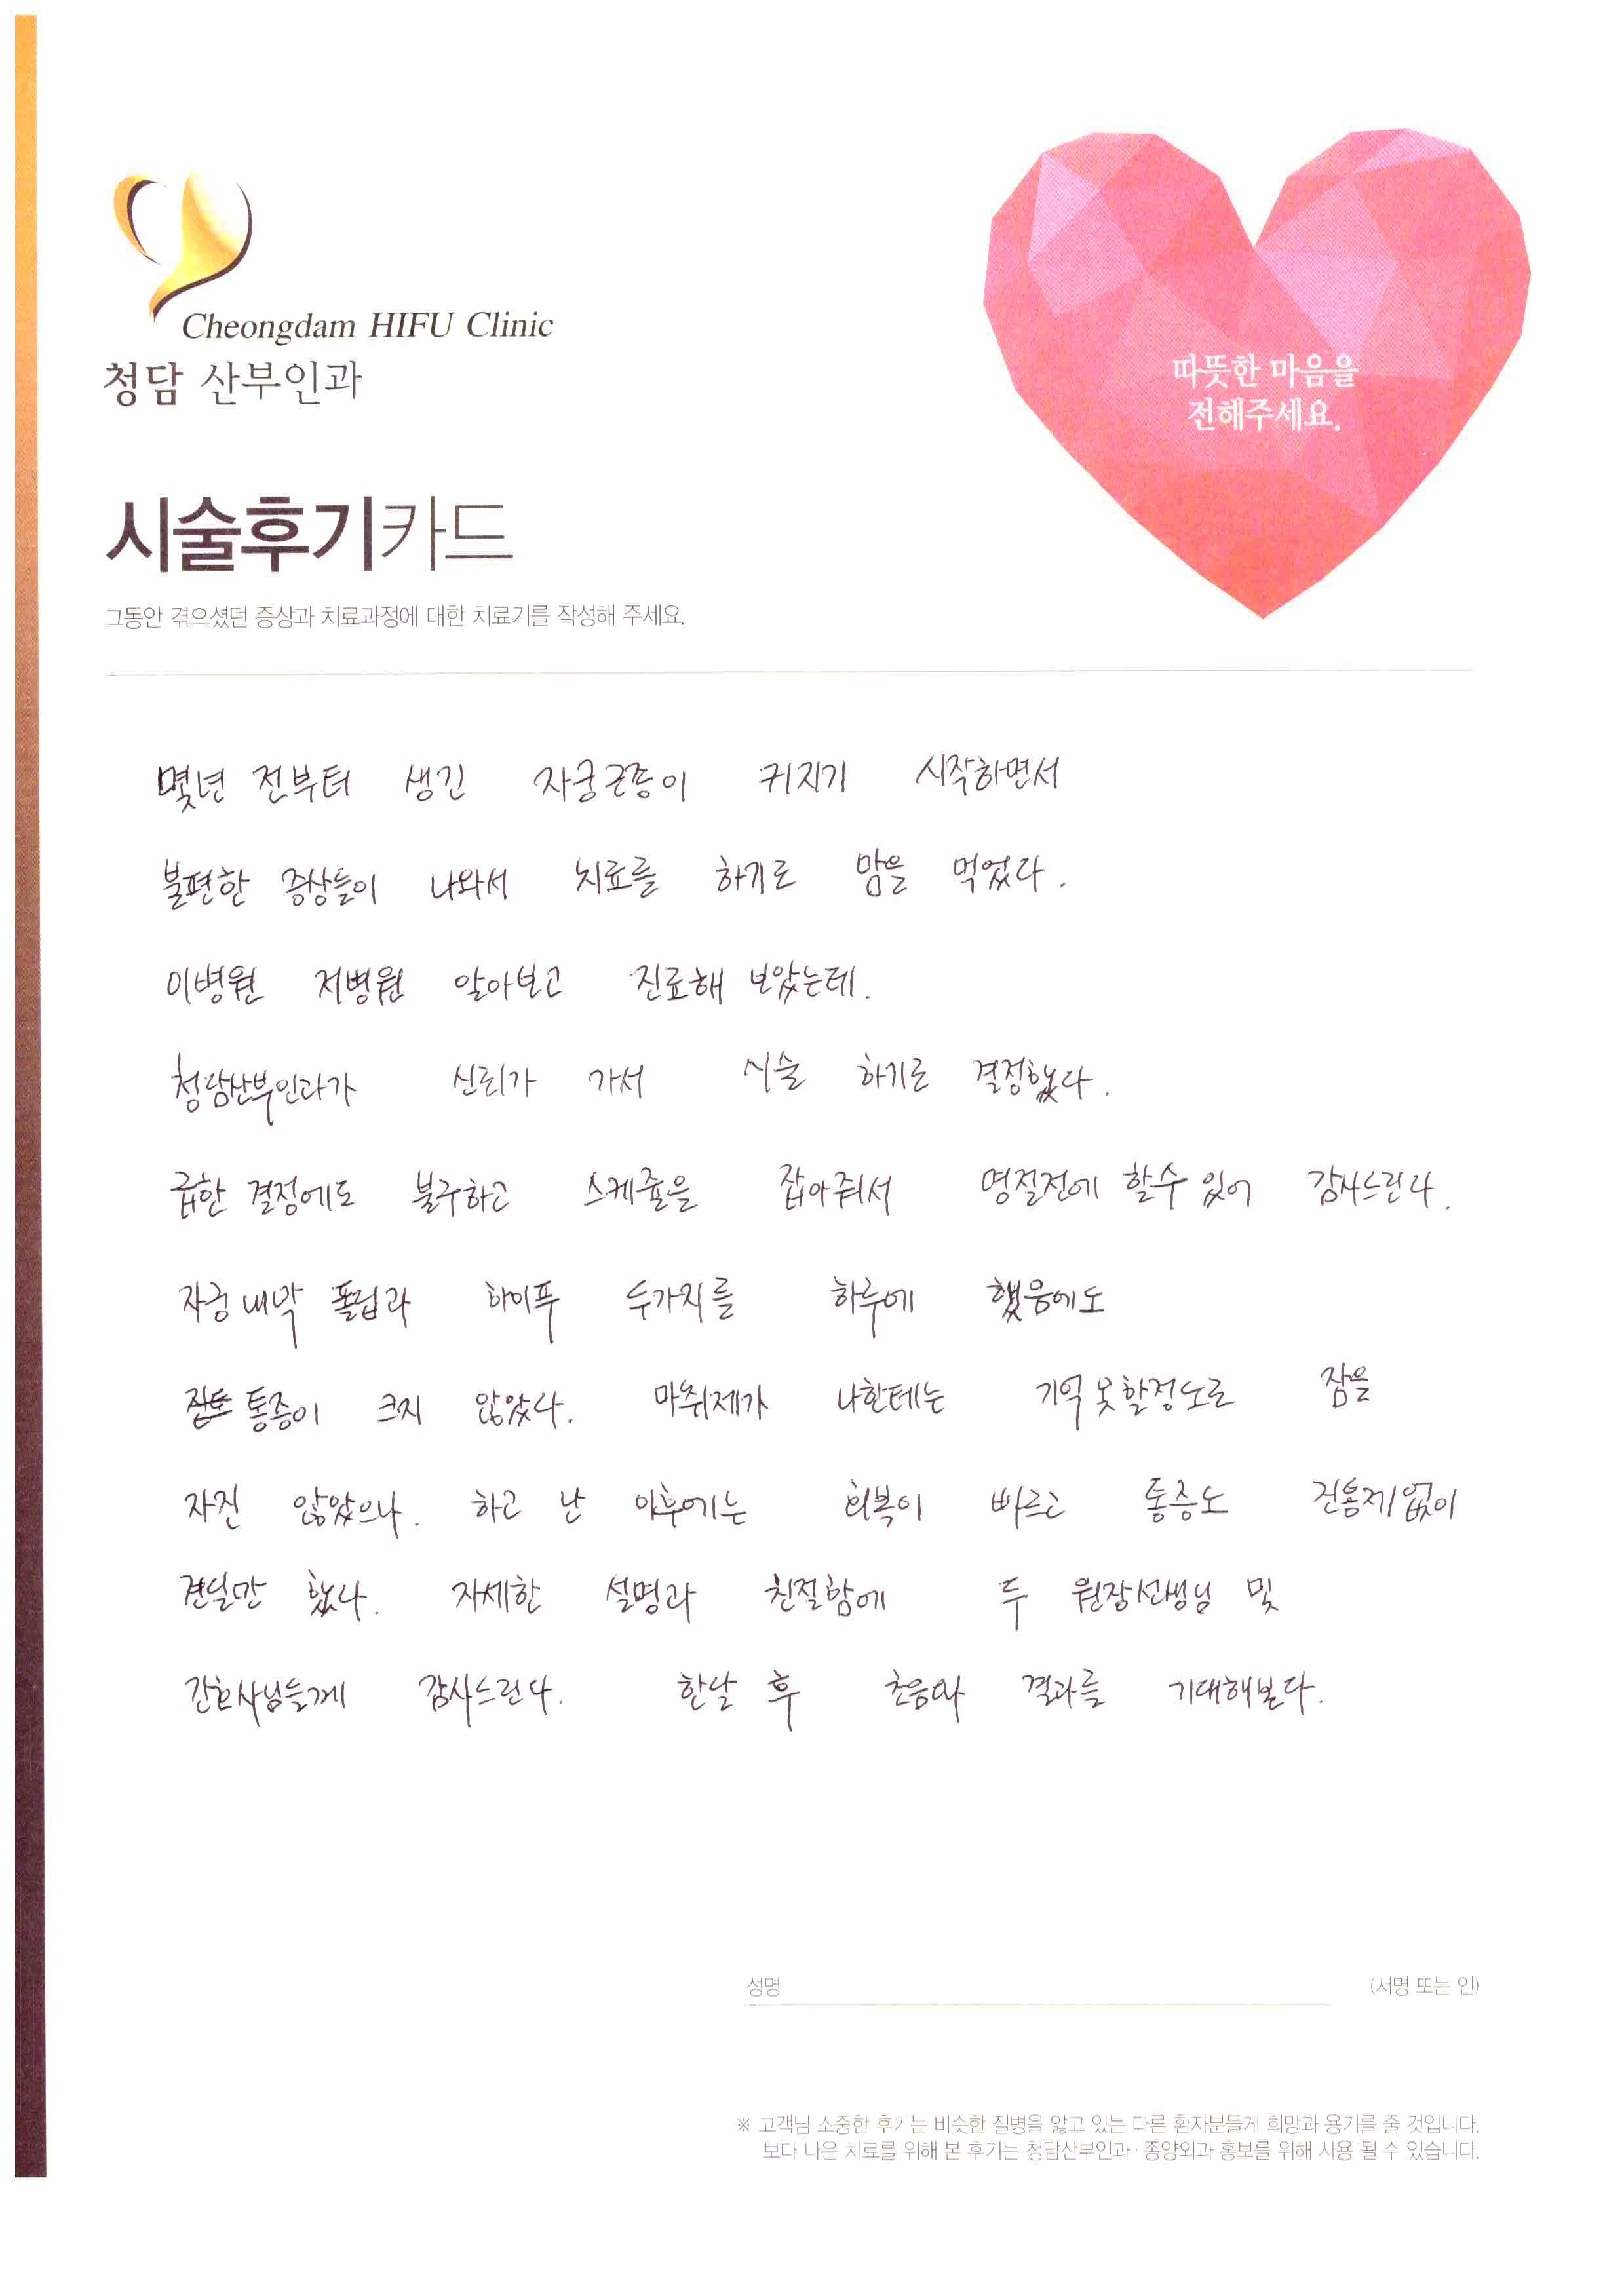 Cheongdam HIFU Clinic
청담 산부인과
따뜻한 마음을
전해주세요.
시술후기카드
그동안 겪으셨던 증상과 치료과정에 대한 치료기를 작성해 주세요.
몇년 전부터 생긴 자궁근종이 커지기 시작하면서
불편한 증상들이 나와서 치료를 하기로 맘을 먹었다.
이병원 저병원 알아보고 진료해 보았는데.
청담산부인과가 신뢰가 가서 시술 하기로 결정했다.
급한 결정에도 불구하고 스케쥴을 잡아줘서 명절전에 할수 있어 감사드린다.
자궁내막 폴립과 하이푸 두가지를 하루에 했음에도
통증이 크지 않았다. 마취제가 나한테는 기억 못할정도로 잠을
자진 않았으나. 하고 난 이후에는 회복이 빠르고 통증도 진통제없이
견딜만 했다. 자세한 설명과 친절함에 두 원장선생님 및
간호사님들께 감사드린다. 한달 후 초음파 결과를 기대해본다.
성명 (서명 또는 인)
※ 고객님 소중한 후기는 비슷한 질병을 앓고 있는 다른 환자분들게 희망과 용기를 줄 것입니다.
보다 나은 치료를 위해 본 후기는 청담산부인과·종양외과 홍보를 위해 사용 될 수 있습니다.